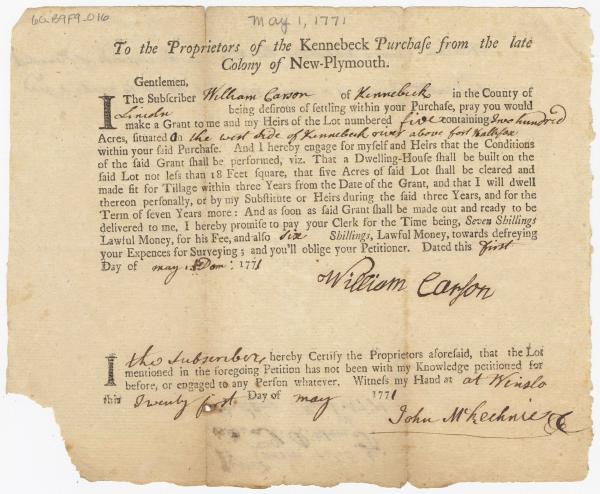 6G.B9F9.016
May 1, 1771
To the Proprietors of the Kennebeck Purchaſe from the late
Colony of New-Plymouth.
Gentlemen,
I The Subſcriber William Carson of Kennebeck in the County of
Lincoln being deſirous of ſettling within your Purchaſe, pray you would
make a Grant to me and my Heirs of the Lot numbered five containing Two hundred
Acres, ſituated On the west side of Kennebeck river above fort Hallifax
within your ſaid Purchaſe. And I hereby engage for myſelf and Heirs that the Conditions
of the ſaid Grant ſhall be performed, viz. That a Dwelling-Houſe ſhall be built on the
ſaid Lot not leſs than 18 Feet ſquare, that five Acres of ſaid Lot ſhall be cleared and
made fit for Tillage within three Years from the Date of the Grant, and that I will dwell
thereon perſonally, or by my Subſtitute or Heirs during the ſaid three Years, and for the
Term of ſeven Years more: And as ſoon as ſaid Grant ſhall be made out and ready to be
delivered to me, I hereby promiſe to pay your Clerk for the Time being, Seven Shillings
Lawful Money, for his Fee, and alſo six Shillings, Lawful Money, towards defreying
your Expences for Surveying; and you'll oblige your Petitioner. Dated this first
Day of may Dom: 1771
William Carson
I the subscriber, hereby Certify the Proprietors aforeſaid, that the Lot
mentioned in the foregoing Petition has not been with my Knowledge petitioned for
before, or engaged to any Perſon whatever. Witneſs my Hand at at Winslo
this Twenty first Day of may 1771
John McKechnie